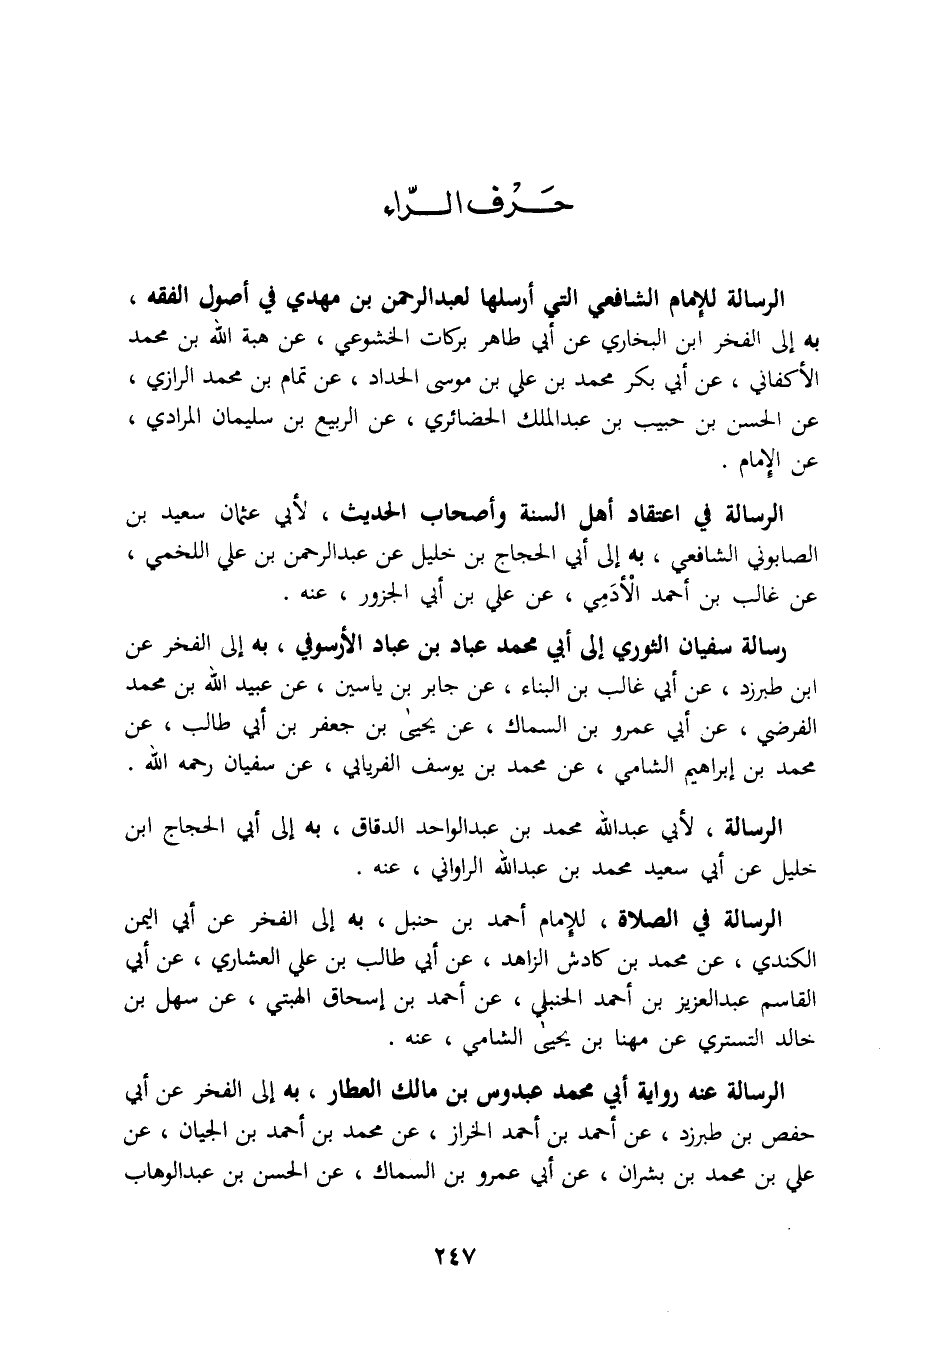 حَرْف الرّاء
الرسالة للإمام الشافعي التي أرسلها لعبدالرحمن بن مهدي في أصول الفقه ،
به إلى الفخر ابن البخاري عن أبي طاهر بركات الخشوعي ، عن هبة الله بن محمد
الأكفاني ، عن أبي بكر محمد بن علي بن موسى الحداد ، عن تمام بن محمد الرازي ،
عن الحسن بن حبيب بن عبدالملك الحضائري ، عن الربيع بن سليمان المرادي ،
عن الإمام .
الرسالة في اعتقاد أهل السنة وأصحاب الحديث ، لأبي عثمان سعيد بن
الصابوني الشافعي ، به إلى أبي الحجاج بن خليل عن عبدالرحمن بن علي اللخمي ،
عن غالب بن أحمد الْأدَمِي ، عن علي بن أبي الجزور ، عنه .
رسالة سفيان الثوري إلى أبي محمد عباد بن عباد الأرسوفي ، به إلى الفخر عن
ابن طبرزد ، عن أبي غالب بن البناء ، عن جابر بن ياسين ، عن عبيد الله بن محمد
الفرضي ، عن أبي عمرو بن السماك ، عن يحيىٰ بن جعفر بن أبي طالب ، عن
محمد بن إبراهيم الشامي ، عن محمد بن يوسف الفريابي ، عن سفيان رحمه الله .
الرسالة ، لأبي عبدالله محمد بن عبدالواحد الدقاق ، به إلى أبي الحجاج ابن
خليل عن أبي سعيد محمد بن عبدالله الراواني ، عنه .
الرسالة في الصلاة ، للإمام أحمد بن حنبل ، به إلى الفخر عن أبي اليمن
الكندي ، عن محمد بن كادش الزاهد ، عن أبي طالب بن علي العشاري ، عن أبي
القاسم عبدالعزيز بن أحمد الحنبلي ، عن أحمد بن إسحاق الهبتي ، عن سهل بن
خالد التستري عن مهنا بن يحيىٰ الشامي ، عنه .
الرسالة عنه رواية أبي محمد عبدوس بن مالك العطار ، به إلى الفخر عن أبي
حفص بن طبرزد ، عن أحمد بن أحمد الخراز ، عن محمد بن أحمد بن الجيان ، عن
علي بن محمد بن بشران ، عن أبي عمرو بن السماك ، عن الحسن بن عبدالوهاب
٢٤٧